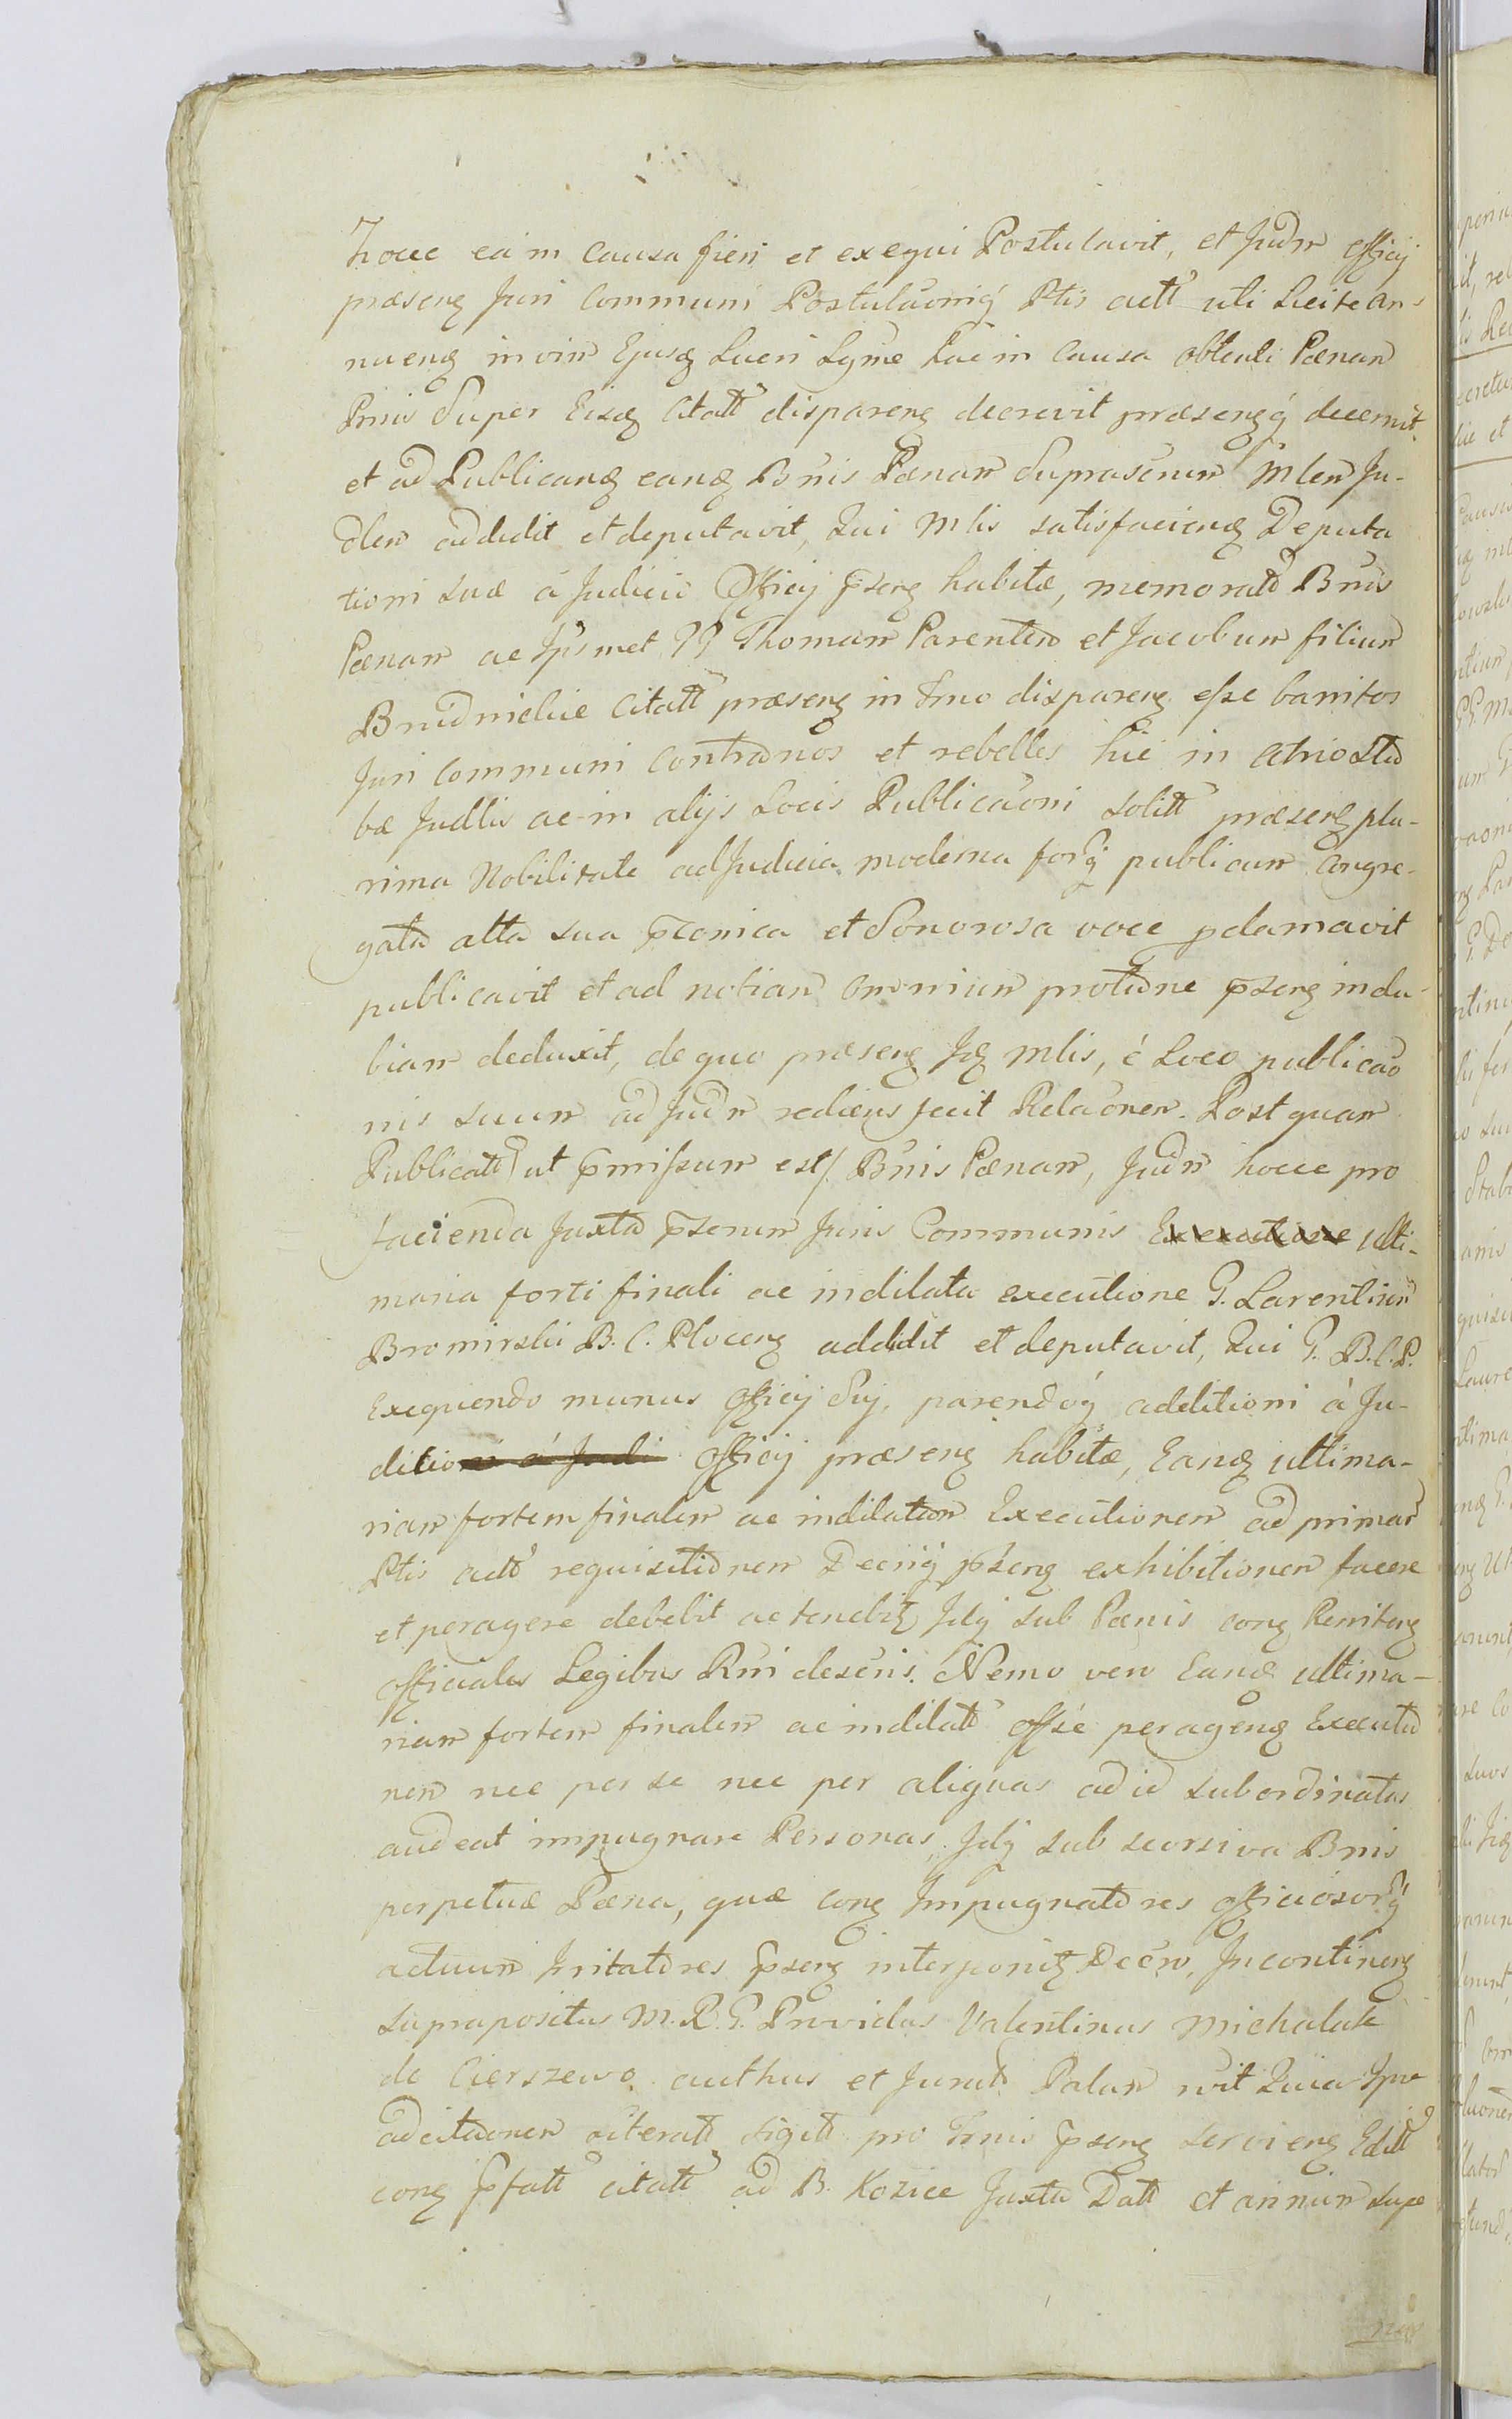 hocce ea in causa fieri et exequi Postulavit, et Judm officij
præseng Juri Communi Postulaonig Ptis actt uti Licite an-
nueng in vim Ejusg Lucri Lyme hac in causa obtenti Pænam
Bnis Super Eisg Citatt dispareng decrevit præsengq decernit.
et ad Publicang eang Bnis Pænam Suprascrum Mlem Ju-
dlem addidit et deputavit, Qui Mlis satisfacieng Deputa
tioni suæ à Judicio Officij pseng habitæ, memoratt Bnis
Pænam ac Ipsmet GG Thomam Parentem et Jacobum filium
Brudnickie Citatt præseng in Trno dispareng esse banitos
Juri communi Contrarios et rebelles hic in Atrio Stu
bæ Judlis ac in alijs Locis Publicaoni solitt præseng plu-
rima Nobilitate ad Judicia moderna forq publicum congre-
gata alta sua pconica et Sonorosa voce pclamavit
publicavit et ad notiam omnium protune pseng indu-
biam deduxit, de quo præseng Jg Mlis, é Loco publicao
nis suum ad Judm rediens fecit Relaonem. Postquam
Publicatt ut pmissum est/ Bnis Pænam, Judm hocce pro
facienda Juxta pscrum Juris Communis Executione ulti-
maria forti finali ac indilata executione G. Larentium
Bromirski B. C. Ploceng addidit et deputavit, Qui G. B.C.P.
Exequendo munus officij Suj, parendoq additioni à Ju-
dicioni à Judi Officij præseng habitæ, Eang ultima-
riam fortem finalem ac indilatam Executionem ad primam
Ptis actt requisitionem Decriq pseng exhibitionem facere
et peragere debebit ac tenebitg Idq sub Pænis cong Reniteng
officiales Legibus Rni descris. Nemo vero Eang ultima-
riam fortem finalem ac indilatt offse perageng Executio
nem nec per se nec per aliquas ad id subordinatas
audeat impugnare Personas, Idq sub seorsiva Bnis
perpetuæ Pæna, quæ cong Impugnatores officiosorq
actuum Irritatores pseng interponitg Decro, Incontineng
Suprapositus M. R. G. Providus Valentinus Michalak
de Cierszewo authus et Juratt Palam rvit Quia Ipse
ad citaonem literatt sigitt pro Trnis pseng servieng Editt
cong pfatt citatt ad B. Kozice Juxta Datt et annum supe